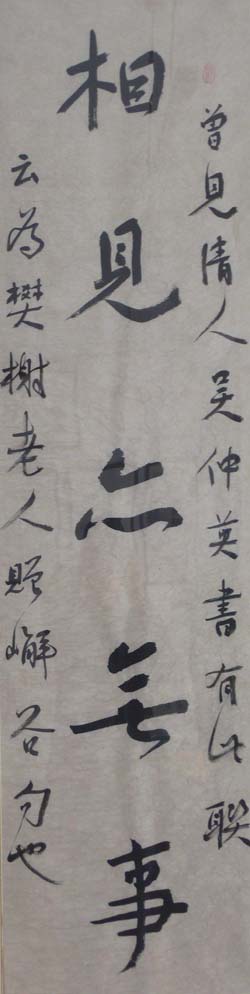 曾見清人吴仲英書有此聯
相見亦無事
云為樊榭老人贈嶰谷句也